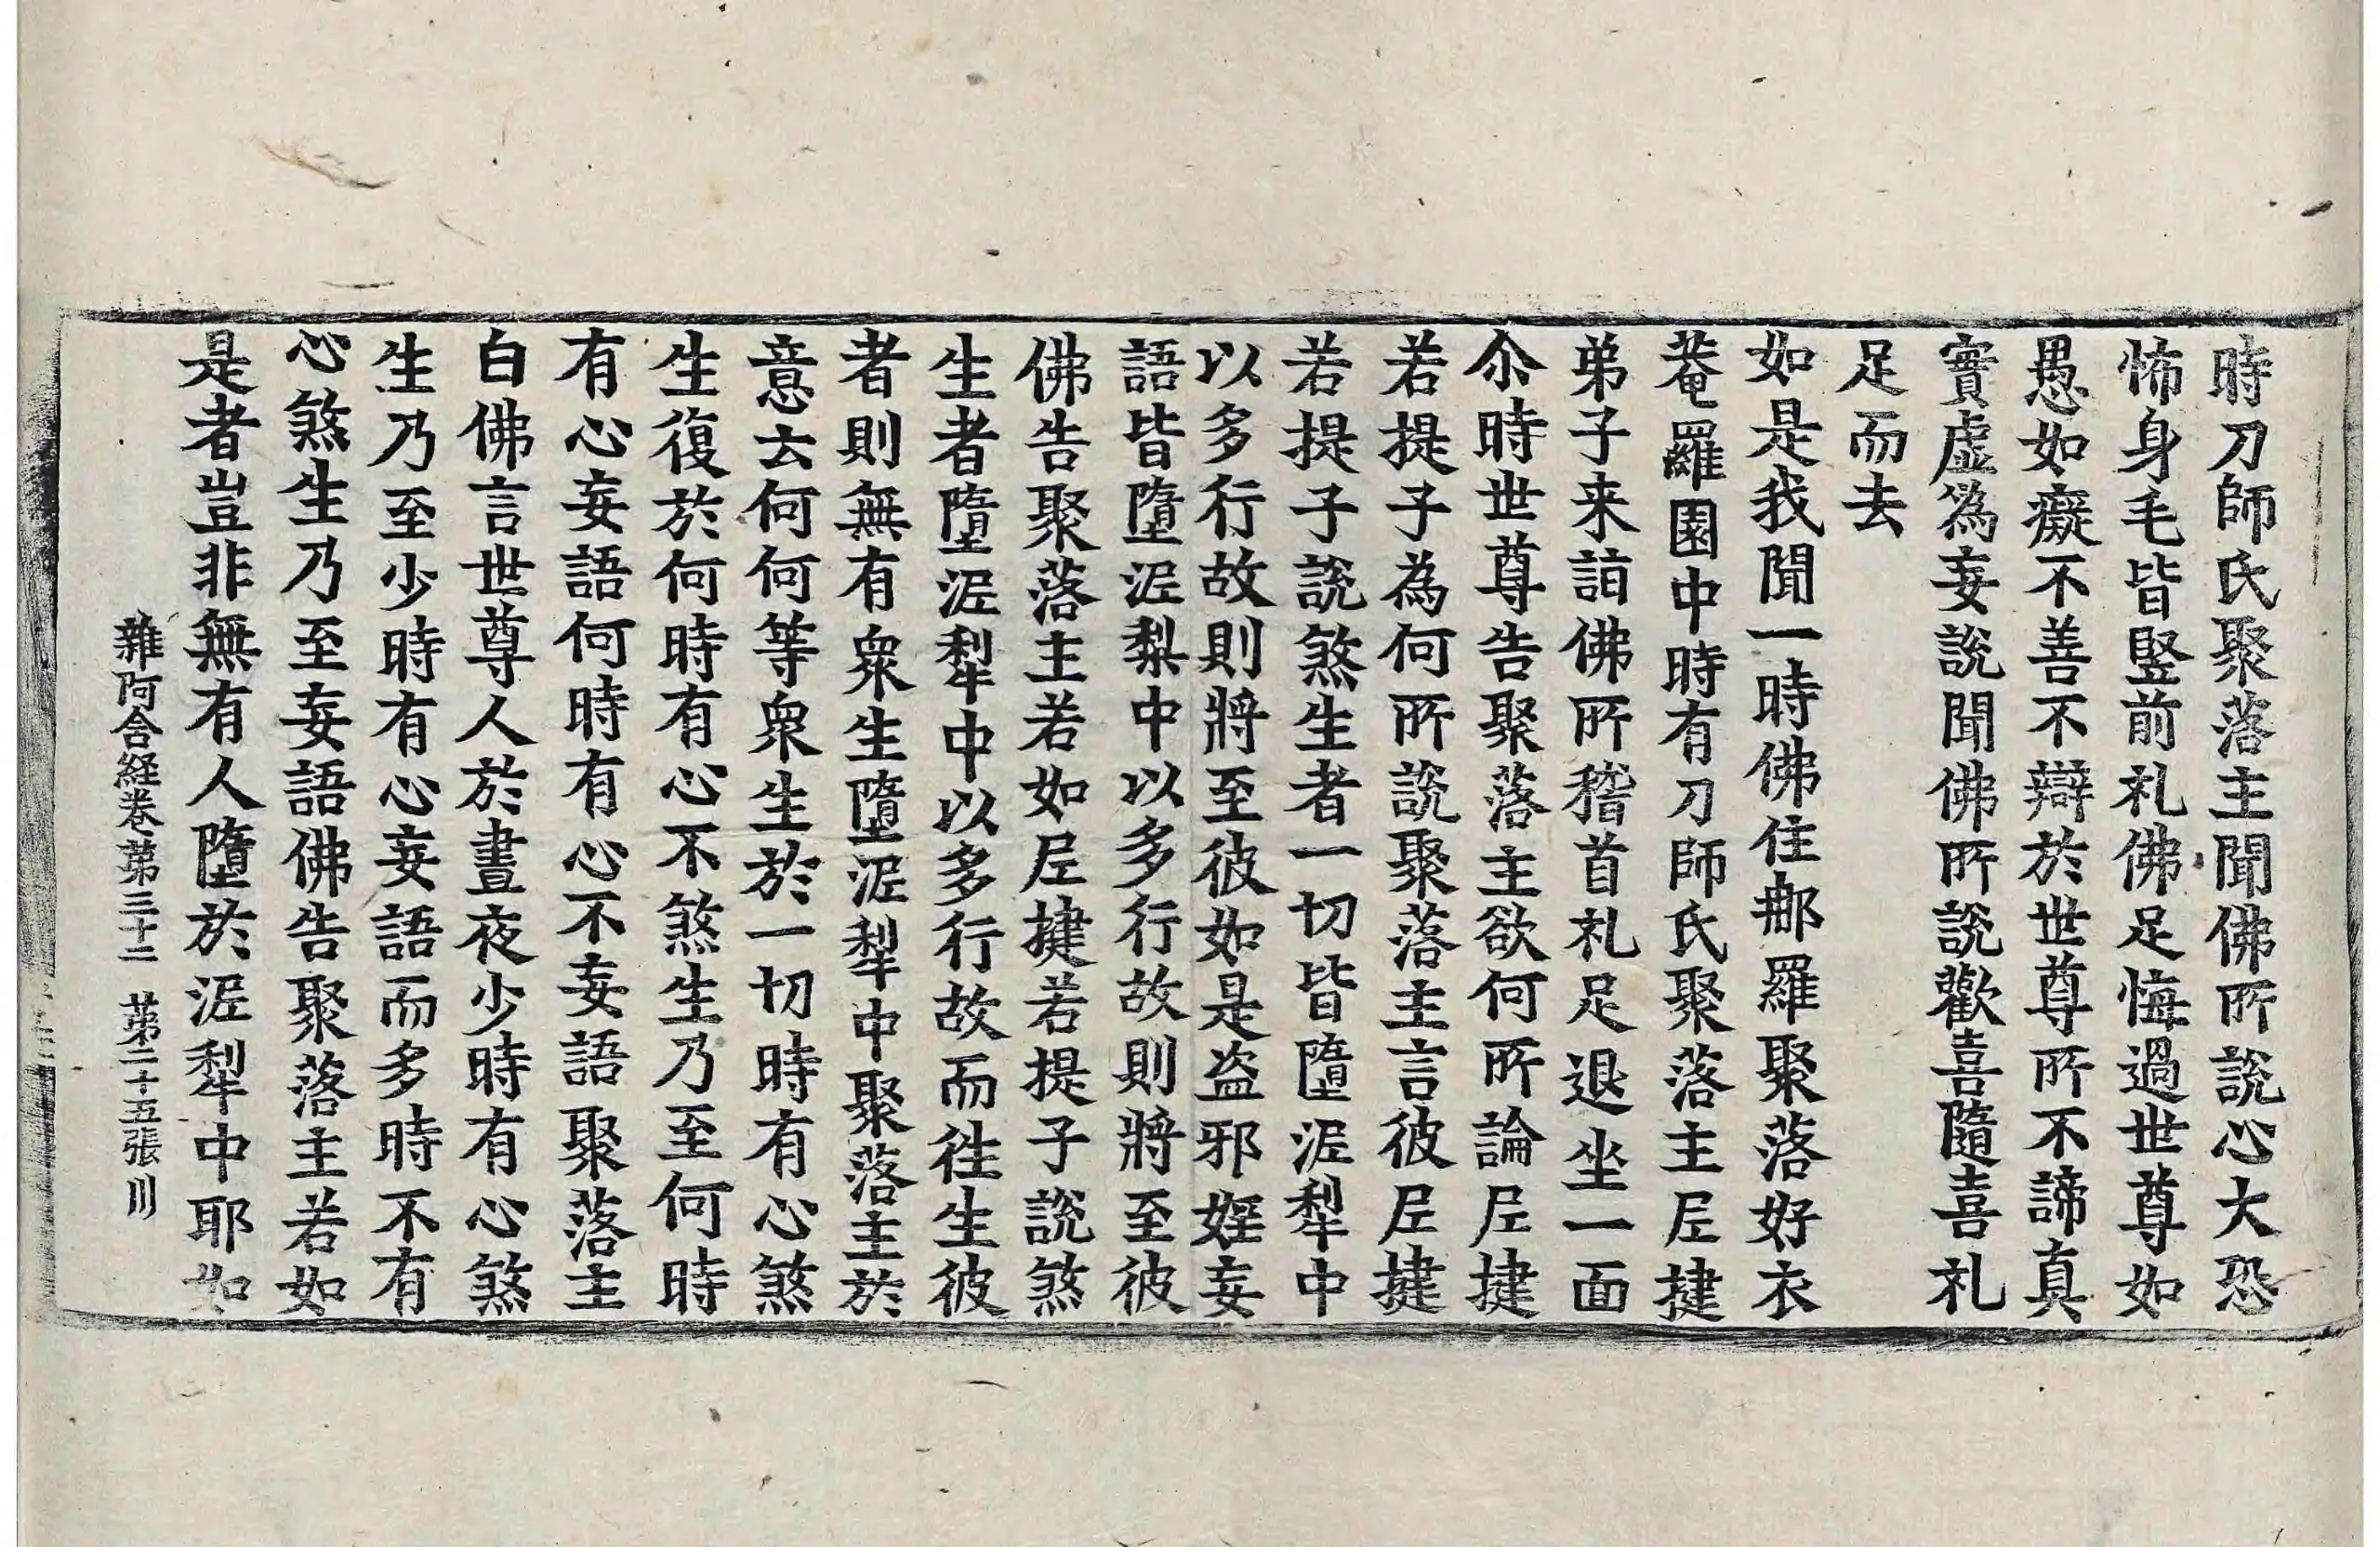 時刀師氏聚落主聞佛所說心大恐
怖身毛皆竪前礼佛足悔過世尊如
愚如癡不善不辯於世尊所不諦真
實虛為妄說聞佛所說歡喜隨喜礼
足而去
如是我聞一時佛住那羅聚落好衣
菴羅園中時有刀師氏聚落主尼揵
弟子来詣佛所稽首礼足退坐一面
尒時世尊告聚落主欲何所論尼揵
若提子為何所說聚落主言彼尼揵
若提子說煞生者一切皆墮泥犁中
以多行故則將至彼如是盗邪婬妄
語皆墮泥梨中以多行故則將至彼
佛告聚落主若如尼揵若提子說煞
生者墮泥犁中以多行故而往生彼
者則無有衆生墮泥犁中聚落主於
意云何何等衆生於一切時有心煞
生復於何時有心不煞生乃至何時
有心妄語何時有心不妄語聚落主
白佛言世尊人於晝夜少時有心煞
生乃至少時有心妄語而多時不有
心煞生乃至妄語佛告聚落主若如
是者豈非無有人墮於泥犁中耶如
雜阿含経卷第三十二 第二十五張 川